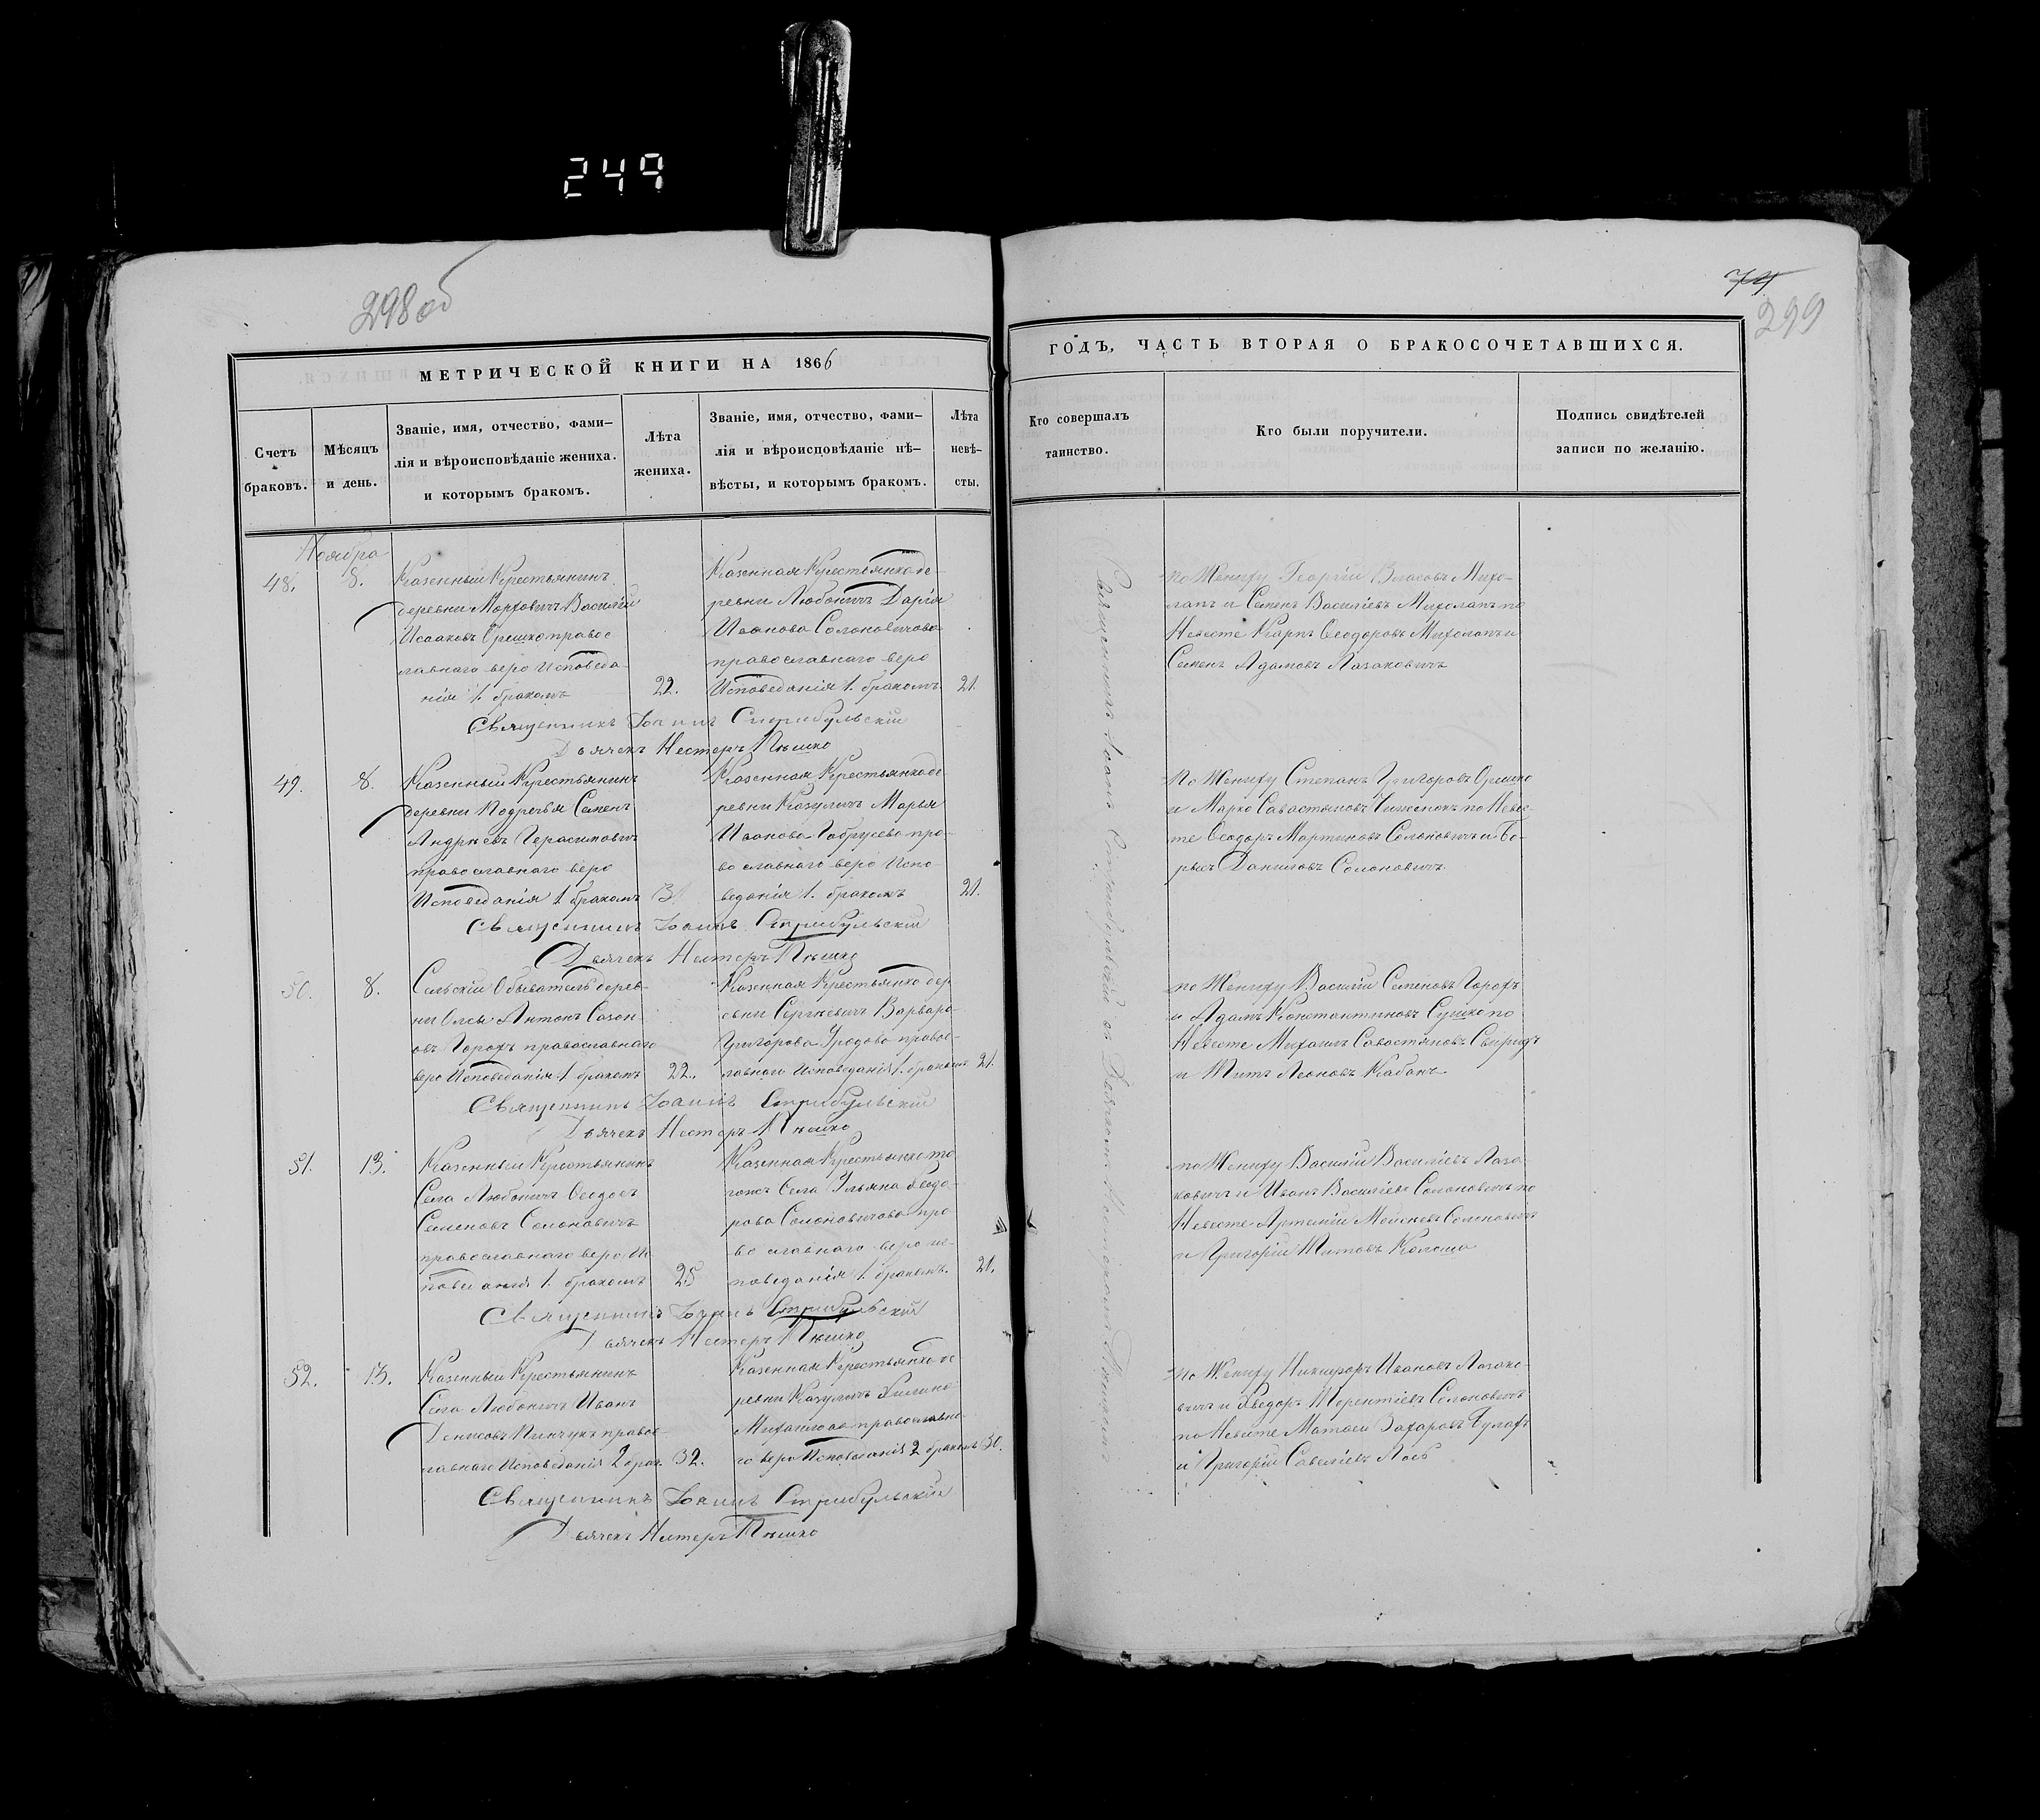 249
298 об
МЕТРИЧЕСКОЙ КНИГИ НА 1866
Счетъ браковъ.
Мѣсяцъ и день.
Званіе, имя, отчество, фами-
лія и вѣроисповѣданіе жениха.
и которымъ бракомъ.
Лѣта жениха.
Званіе, имя, отчество, фами-
лія и вѣроисповѣданіе нѣ-
вѣсты, и которымъ бракомъ.
Лѣта невѣ-
сты.
Ноября
48. 8.
Казенный Крестьянинъ
деревни Марховичъ Василій
Исааковъ Орешко правос
лавнаго веро Исповеда
нія 1. бракомъ
22.
Казенная Крестьянка де-
ревни Любоничъ Дарія
Иванова Солоновичова
православнаго веро
Исповеданія 1. бракомъ
21.
Священникъ Іоаннъ Стрибульскій
Дьячекъ Нестеръ Пѣшко
49. 8.
Казенный Крестьянинъ
деревни Подречья Семенъ
Андрѣевъ Герасимовичъ
православнаго веро
Исповеданія 1 бракомъ
Казенная Крестьянка де
ревни Козуличъ Марья
Иванова Габрусева пра-
во славнаго веро Испо-
веданія 1. бракомъ
21.
Священникъ Іоаннъ Стрибульскій
Дьячекъ Нестеръ Пѣшко
50. 8.
Сельскій Обыватель дерев-
ни Олсы Антонъ Сазон-
овъ Горохъ православнаго
веро Исповеданія 1 бракомъ
22.
Казенная Крестьянка дер
евни Сергѣевичъ Варвара
Григорова Уредова правос-
лавнаго Исповеданія 1. бракомъ
21.
Священникъ Іоаннъ Стрибульскій
Дьячекъ Нестеръ Пѣшко
51. 13.
Казенный Крестьянинъ
Села Любоничъ Феодосъ
Семеновъ Солоновичъ
православнаго веро Ис
поведанія 1. бракомъ
25
Казенная Крестьянка то
гожъ Села Ульяна Феодо-
рова Солоновичова пра
во славнаго веро ис-
поведанія 1. бракомъ.
21.
Священникъ Іоаннъ Стрибульскій
Дьячекъ Нестеръ Пѣшко
52. 13.
Казенный Крестьянинъ
Села Любоничъ Иванъ
Денисовъ Пинчукъ правос-
лавнаго Исповеданія 2 брак.
32.
Казенная Крестьянка де
ревни Козуличъ
Михайлова православна-
го веро Исповеданія 2 бракомъ
30.
Священникъ Іоаннъ Стрибульскій
Дьячекъ Нестеръ Пѣшко
74
299
ГОДЪ, ЧАСТЬ ВТОРАЯ О БРАКОСОЧЕТАВШИХСЯ.
Кто совершалъ
таинство.
Кто были поручители.
Подпись свидѣтелей
записи по желанію.
Священникъ Іоаннъ Стрибульскій съ Дьячкомъ
по Жениху Георгій Власовъ Михо-
лапъ и Семенъ Василіевъ Михолапъ по
Невесте Карпъ Феодоровъ Михолапъ и
Семенъ Адамовъ Лазаковичъ
По Жениху Степанъ Григоровъ Орешко
и Марко Савастяновъ Чиженокъ по Невес-
те Феодоръ Мартиновъ Солоновичъ и Бо-
рысъ Даниловъ Солоновичъ
по Жениху Василій Семеновъ Горохъ
и Адамъ Константиновъ Сушко по
Невесте Михаилъ Савостяновъ Свиридъ
и Титъ Леоновъ Кабанъ
по Жениху Василій Василіевъ Лаза
ковичъ и Иванъ Василіевъ Солоновичъ по
Невесте Артемій Моисеевъ Солоновичъ
и Григорій Титовъ Калоша
По Жениху Никифоръ Ивановъ Лазако-
вичъ и Фведоръ Терентіевъ Солоновичъ
по Невесте Матвей Захаровъ
и Григорій Савеліевъ